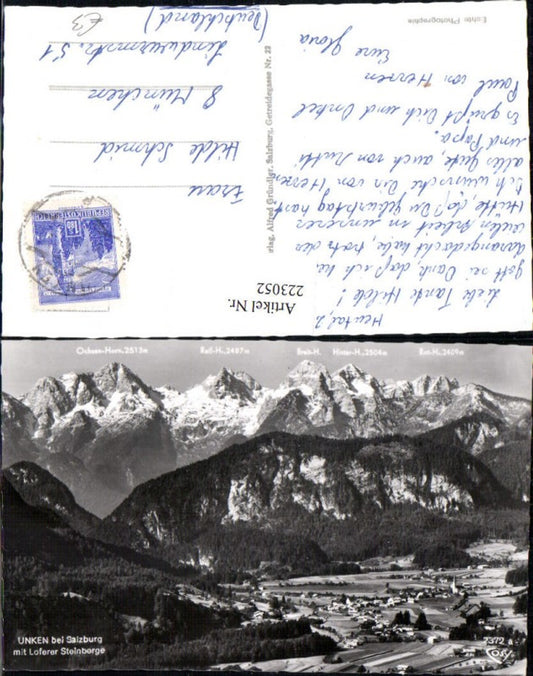 Heutal, 2
Liebe Tante Hilde!
Gott sei Dank daß ich
daran gedacht habe, trotz der
vielen Arbeit in unserer
Hütte, daß Du Geburtstag hast
Ich wünsche Dir von Herzen
alles Gute, auch von Mutti
und Papa.
Es grüßt Dich und Onkel
Paul von Herzen
Eure Gloria
Echte Photographie
Verlag Alfred Gründler, Salzburg, Getreidegasse Nr. 22
Frau
Hilde Schmid
8 München
Lindwurmstr. 51
(Deutschland)
€3
REPUBLIK ÖSTERREICH
Artikel Nr.
223052
Ochsen-Horn, 2513m Reif-H., 2487m Breit-H. Hinter-H., 2504m Rot-H., 2409m
UNKEN bei Salzburg
mit Loferer Steinberge
7372 a
Cosy